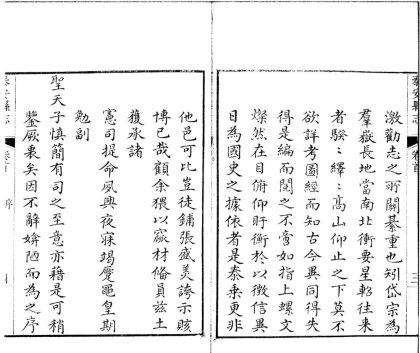 泰安縣志 卷首 三
激勸志之所關綦重也矧岱宗為
羣嶽長地當南北衝要星軺往来
者駸:繹:高山仰止之下莫不
欲詳考圖經而知古今異同得失
得是編而閱之不啻如指上螺文
燦然在目俯仰盱衡於以徵信異
日為國史之據依者是泰乗更非
他邑可比豈徒鋪張盛美誇示賅
博已哉顧余猥以窾材備員茲土
獲承諸
憲司提命夙興夜寐竭蹷黽皇期
勉副
聖天子慎簡有司之至意亦藉是可稍
鑒厥衷矣因不辭媕陋而為之序
泰安縣志 卷首 序